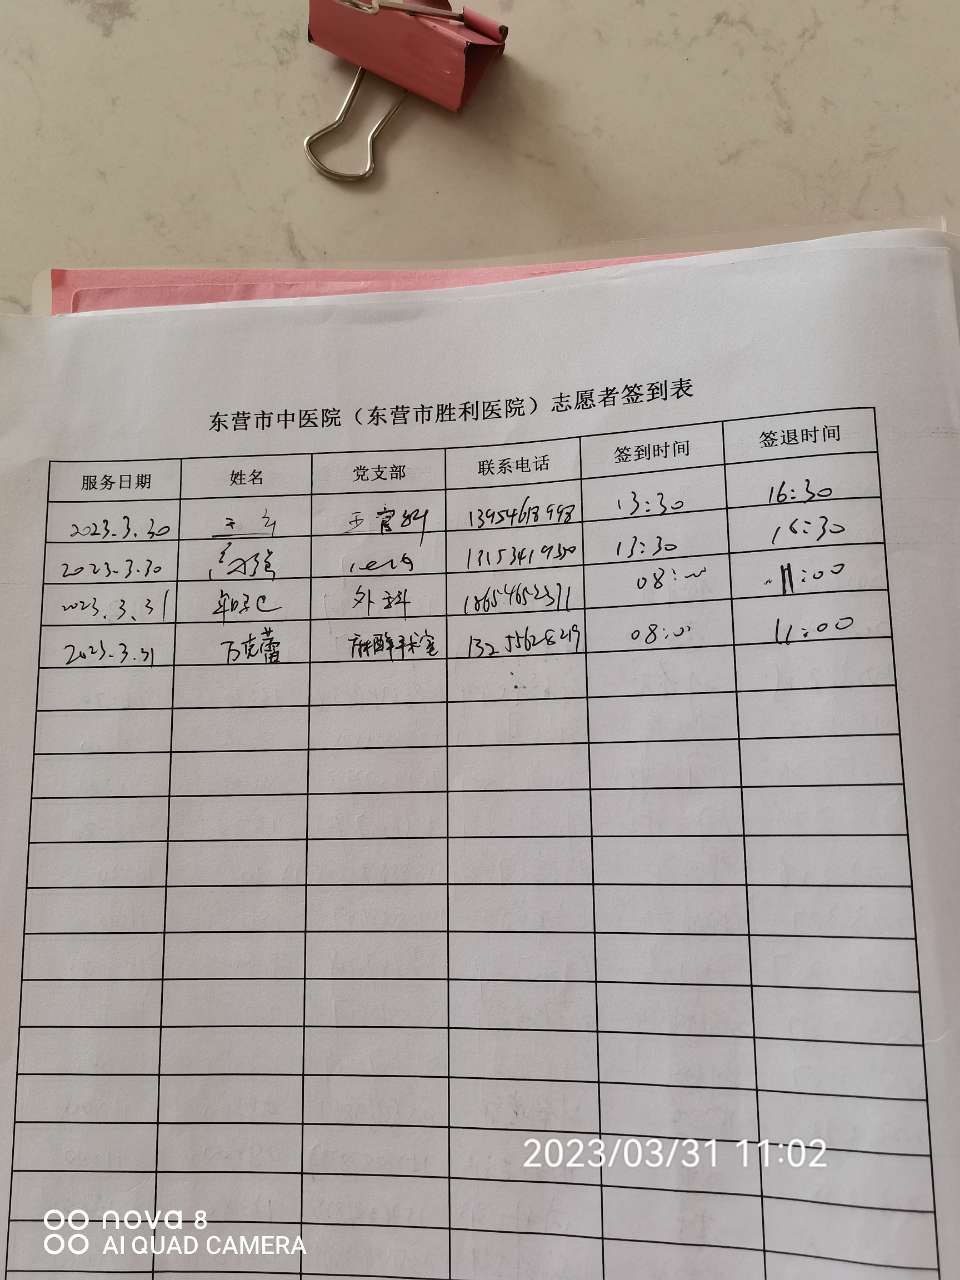 东营市中医院（东营市胜利医院）志愿者签到表
服务日期 姓名 党支部 联系电话 签到时间 签退时间
2023.3.30 五官科 13954618998 13:30 16:30
2023.3.30 13:30 16:30
2023.3.31 外科 18654652371 08:00 11:00
2023.3.31 麻醉手术室 13255628219 08:00 11:00
2023/03/31 11:02
nova 8
AI QUAD CAMERA